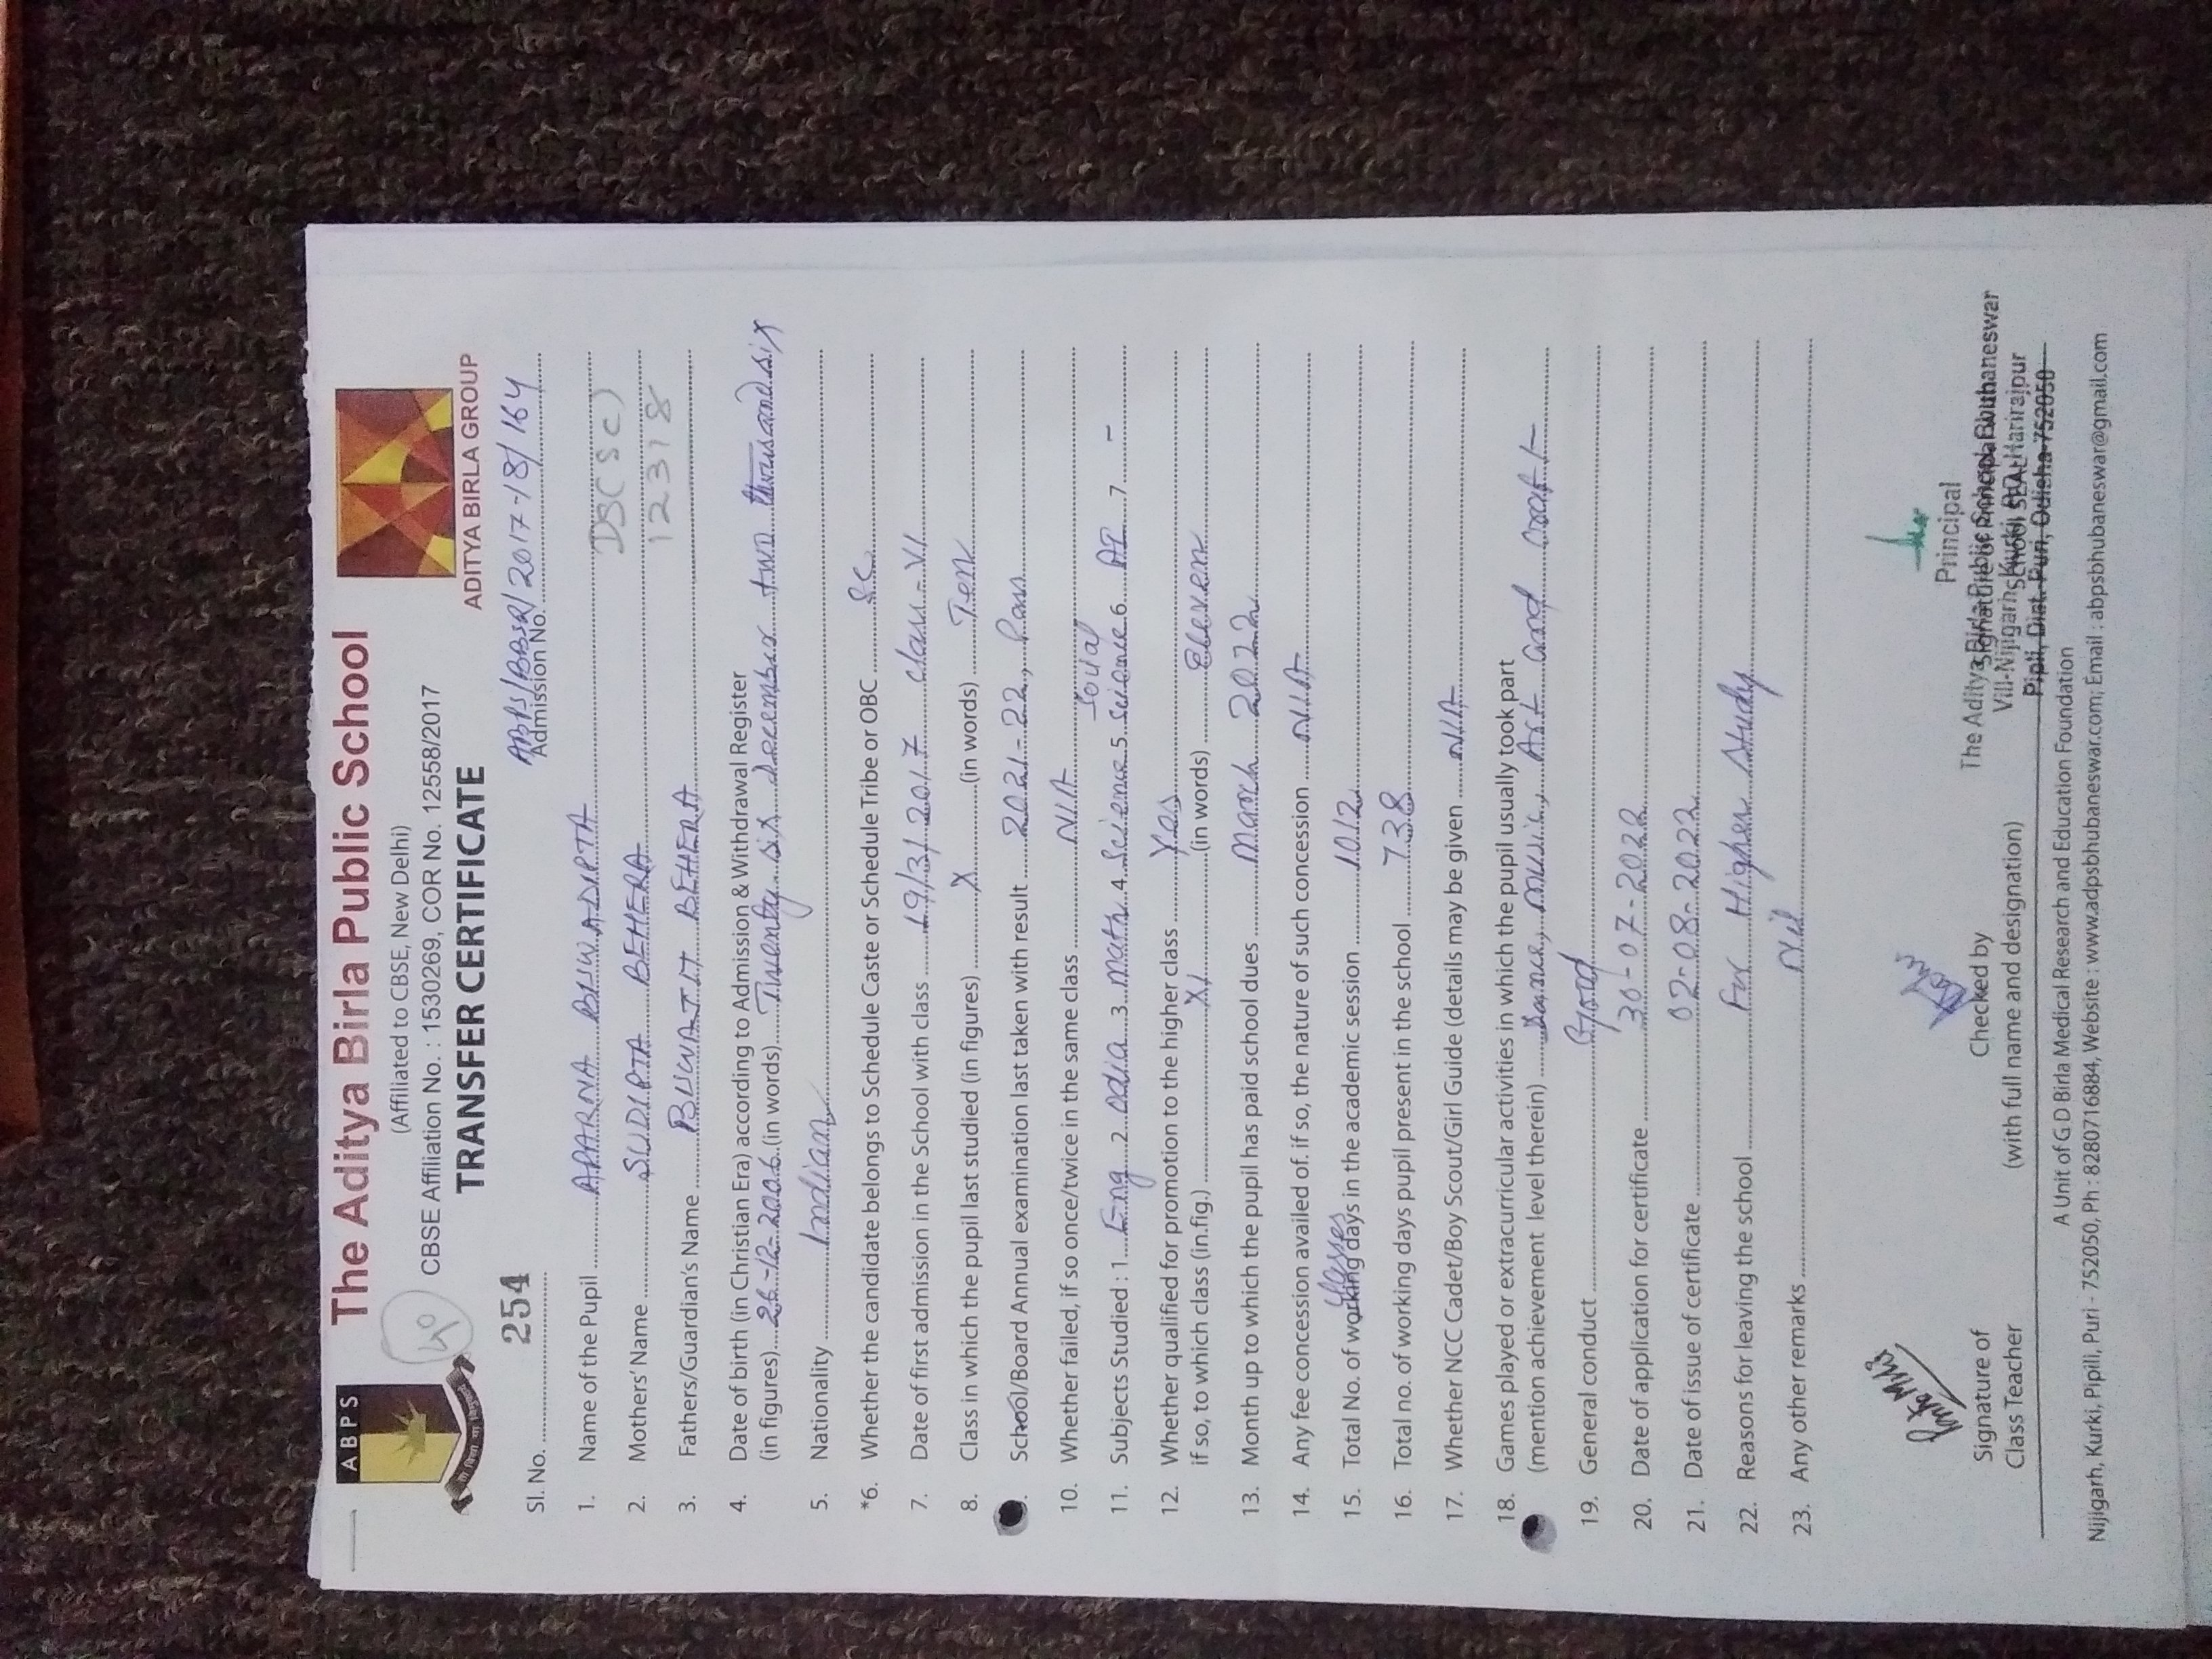 ABPS
The Aditya Birla Public School
(Affiliated to CBSE, New Delhi)
CBSE Affiliation No. : 1530269, COR No. 12558/2017
TRANSFER CERTIFICATE
ADITYA BIRLA GROUP
Sl. No. 254
ABPS/BBSR/2017-18/164
Admission No.
1. Name of the Pupil APARNA BISWADIPTA
DSC(SC)
2. Mothers' Name SUDIPTA BEHERA
12318
3. Fathers/Guardian's Name BISWAJIT BEHERA
4. Date of birth (in Christian Era) according to Admission & Withdrawal Register
(in figures) 26-12-2006 (in words) Twenty six december two thousand six
5. Nationality Indian
*6. Whether the candidate belongs to Schedule Caste or Schedule Tribe or OBC SC
7. Date of first admission in the School with class 19/3/2017 class-VI
8. Class in which the pupil last studied (in figures) X (in words) Ten
School/Board Annual examination last taken with result 2021-22, Pass
10. Whether failed, if so once/twice in the same class N/A
11. Subjects Studied : 1 Eng 2 Odia 3 math 4 Science 5 Social Science 6 7 -
12. Whether qualified for promotion to the higher class Yes
if so, to which class (in.fig.) XI (in words) Eleven
13. Month up to which the pupil has paid school dues March 2022
14. Any fee concession availed of. if so, the nature of such concession N/A
15. Total No. of working days in the academic session 1012
16. Total no. of working days pupil present in the school 738
17. Whether NCC Cadet/Boy Scout/Girl Guide (details may be given N/A
18. Games played or extracurricular activities in which the pupil usually took part
(mention achievement level therein) Dance, music, Art and craft
19. General conduct Good
20. Date of application for certificate 30-07-2022
21. Date of issue of certificate 02-08-2022
22. Reasons for leaving the school For Higher Study
23. Any other remarks Nil
Signature of
Class Teacher
Checked by
(with full name and designation)
Principal
The Aditya Birla Public School, Bhubaneswar
Signature of Principal with
Vill-Nijigarh Kurki, PO-Harirajpur
School SEAL
Pipli, Dist.-Puri, Odisha-752050
A Unit of G.D Birla Medical Research and Education Foundation
Nijigarh, Kurki, Pipili, Puri - 752050, Ph : 8280716884, Website : www.adpsbhubaneswar.com; Email : abpsbhubaneswar@gmail.com